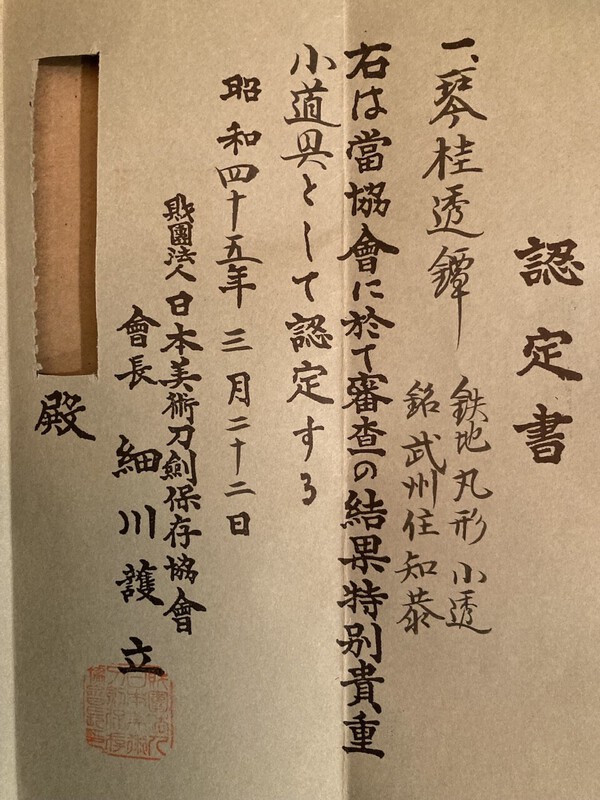 認定書
一、琴柱透鐔
鉄地丸形小透
銘武州住知恭
右は當協會に於て審査の結果特別貴重
小道具として認定する
昭和四十五年三月二十二日
財團法人日本美術刀劍保存協會
會長 細川護立
殿